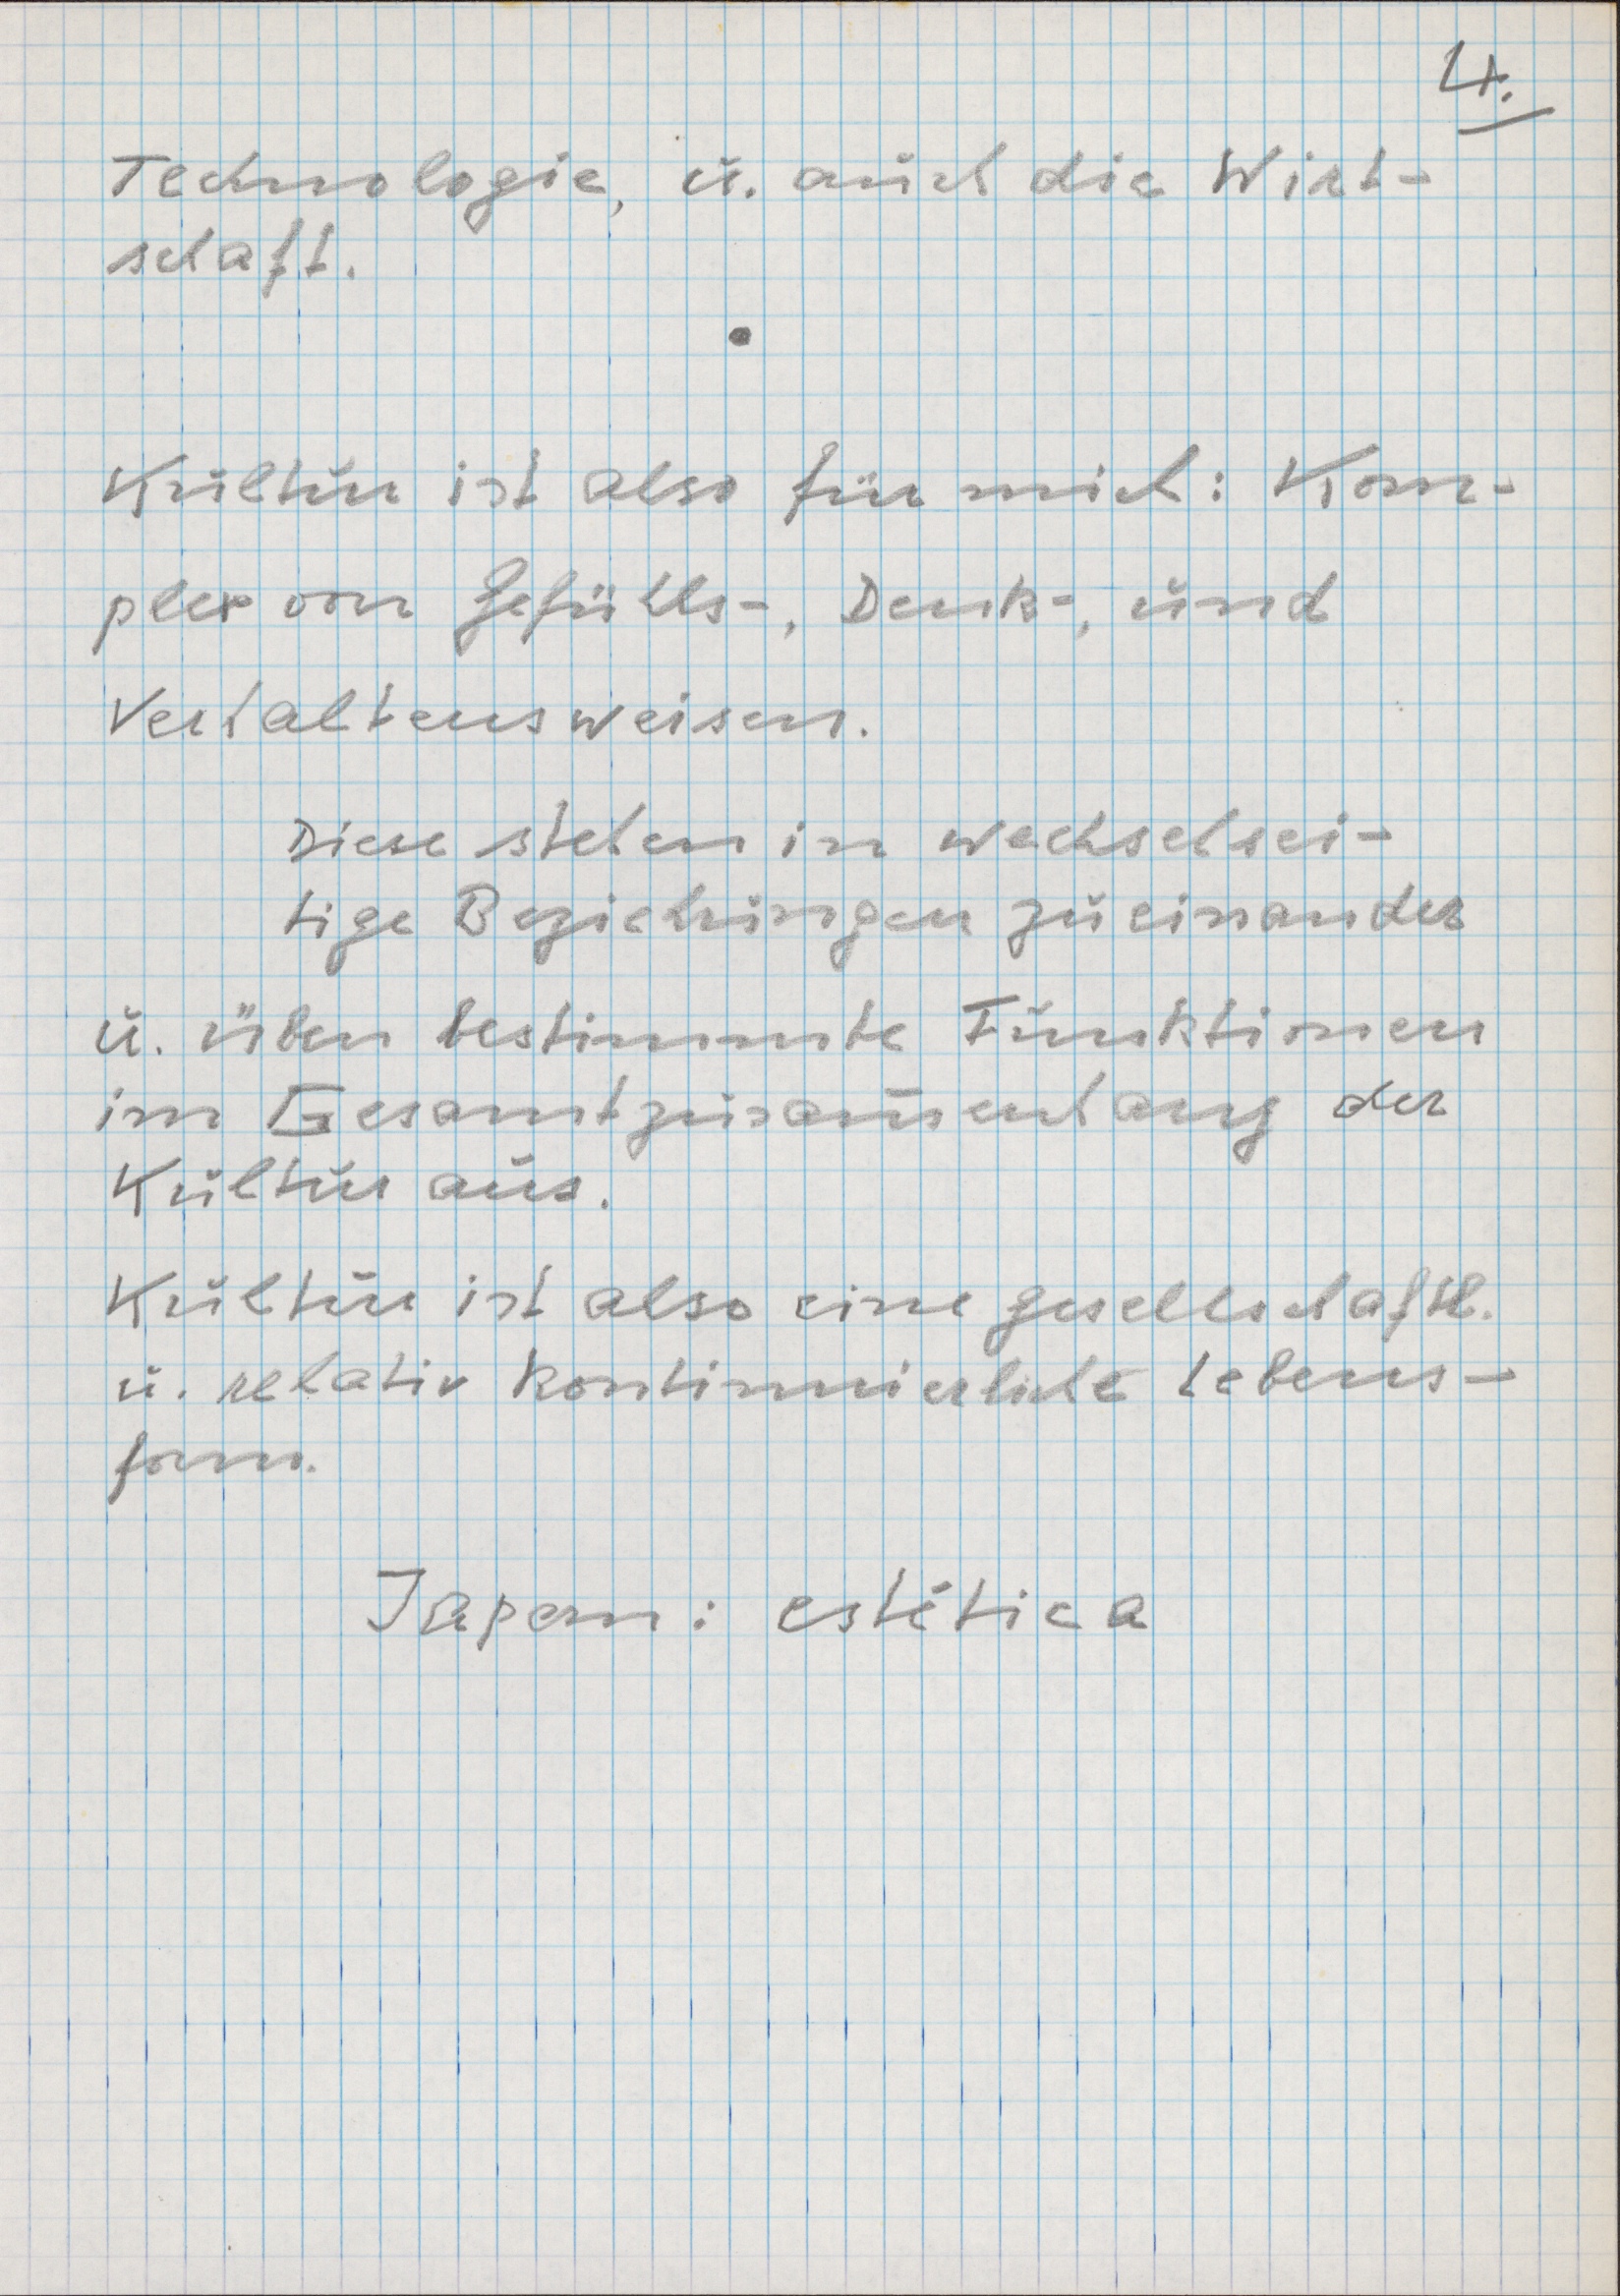 4.
Technologie, u. auch die Wirt-
schaft.
Kultur ist also für mich: Kom-
plex von Gefühls-, Denk-, und
Verhaltensweisen.
Diese stehen in wechselsei-
tige Beziehungen zueinander
u. üben bestimmte Funktionen
im Gesamtzusam̄enhang der
Kultur aus.
Kultur ist also eine gesellschaftl.
u. relativ kontinuierliche Lebens-
form.
Japan: estética